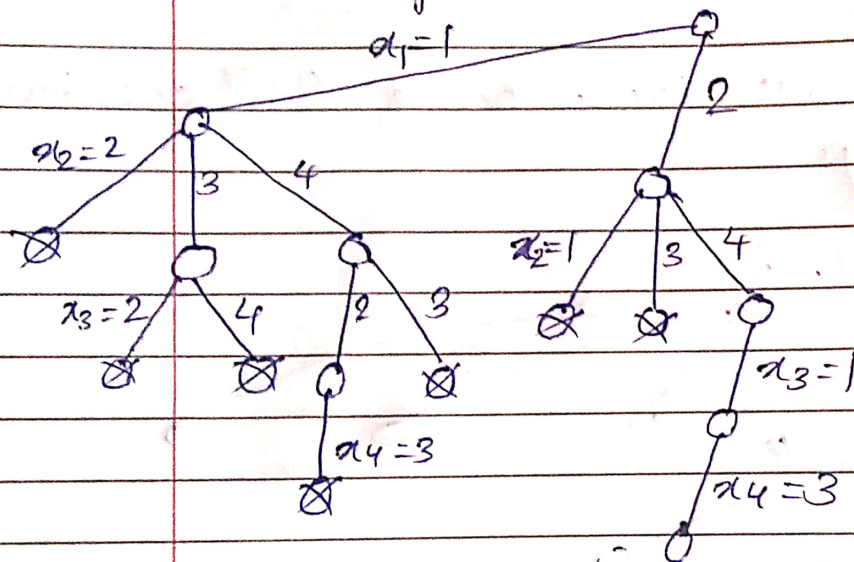 x₁=1
2
x₂=2
3
4
x₂=1
3
4
x₃=2
4
2
3
x₃=1
x₄=3
x₄=3